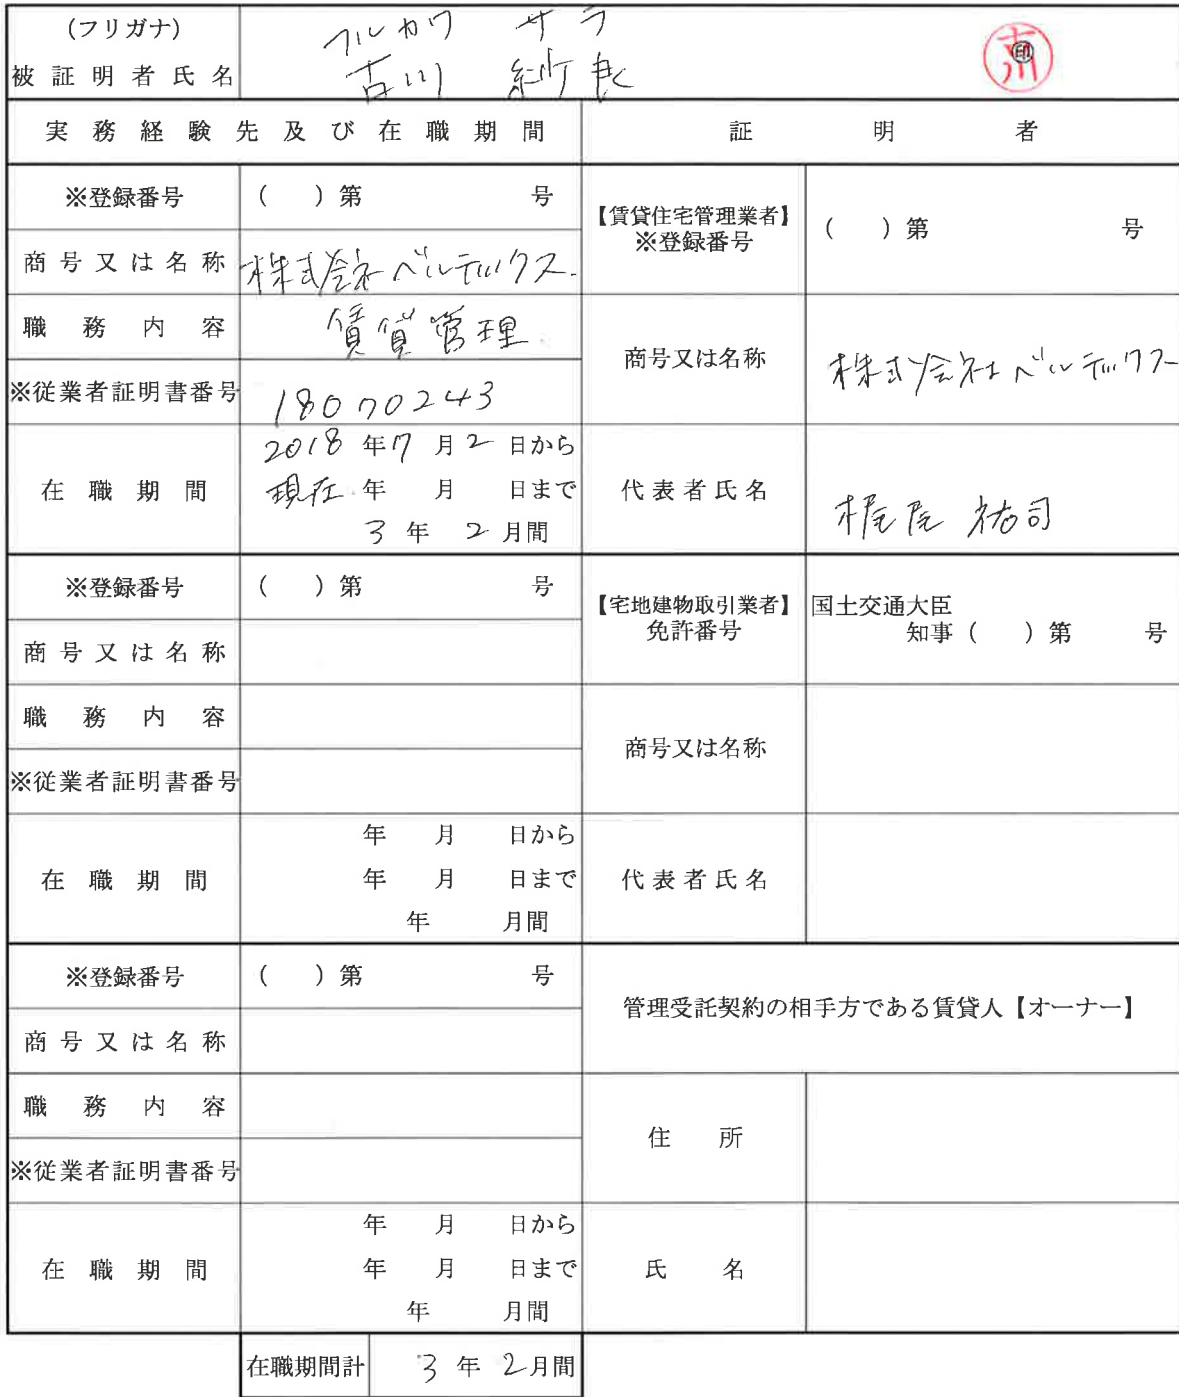 (フリガナ) フルカワ サラ
被証明者氏名 古川 紗良 古川 印
実務経験先及び在職期間 証明者
※登録番号 ( )第 号
商号又は名称 株式会社ベルテックス
職務内容 賃貸管理
※従業者証明書番号 18070243
在職期間 2018年7月2日から
現在年 月 日まで
3年 2月間
【賃貸住宅管理業者】
※登録番号 ( )第 号
商号又は名称 株式会社ベルテックス
代表者氏名 梶尾 祐司
※登録番号 ( )第 号
商号又は名称
職務内容
※従業者証明書番号
在職期間 年 月 日から
年 月 日まで
年 月間
【宅地建物取引業者】 国土交通大臣
免許番号 知事( )第 号
商号又は名称
代表者氏名
※登録番号 ( )第 号
商号又は名称
職務内容
※従業者証明書番号
在職期間 年 月 日から
年 月 日まで
年 月間
管理受託契約の相手方である賃貸人【オーナー】
住所
氏名
在職期間計 3年2月間